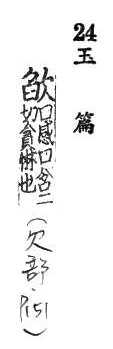 24 玉篇
欿口感口含二
切貪惏也(欠部·P151)